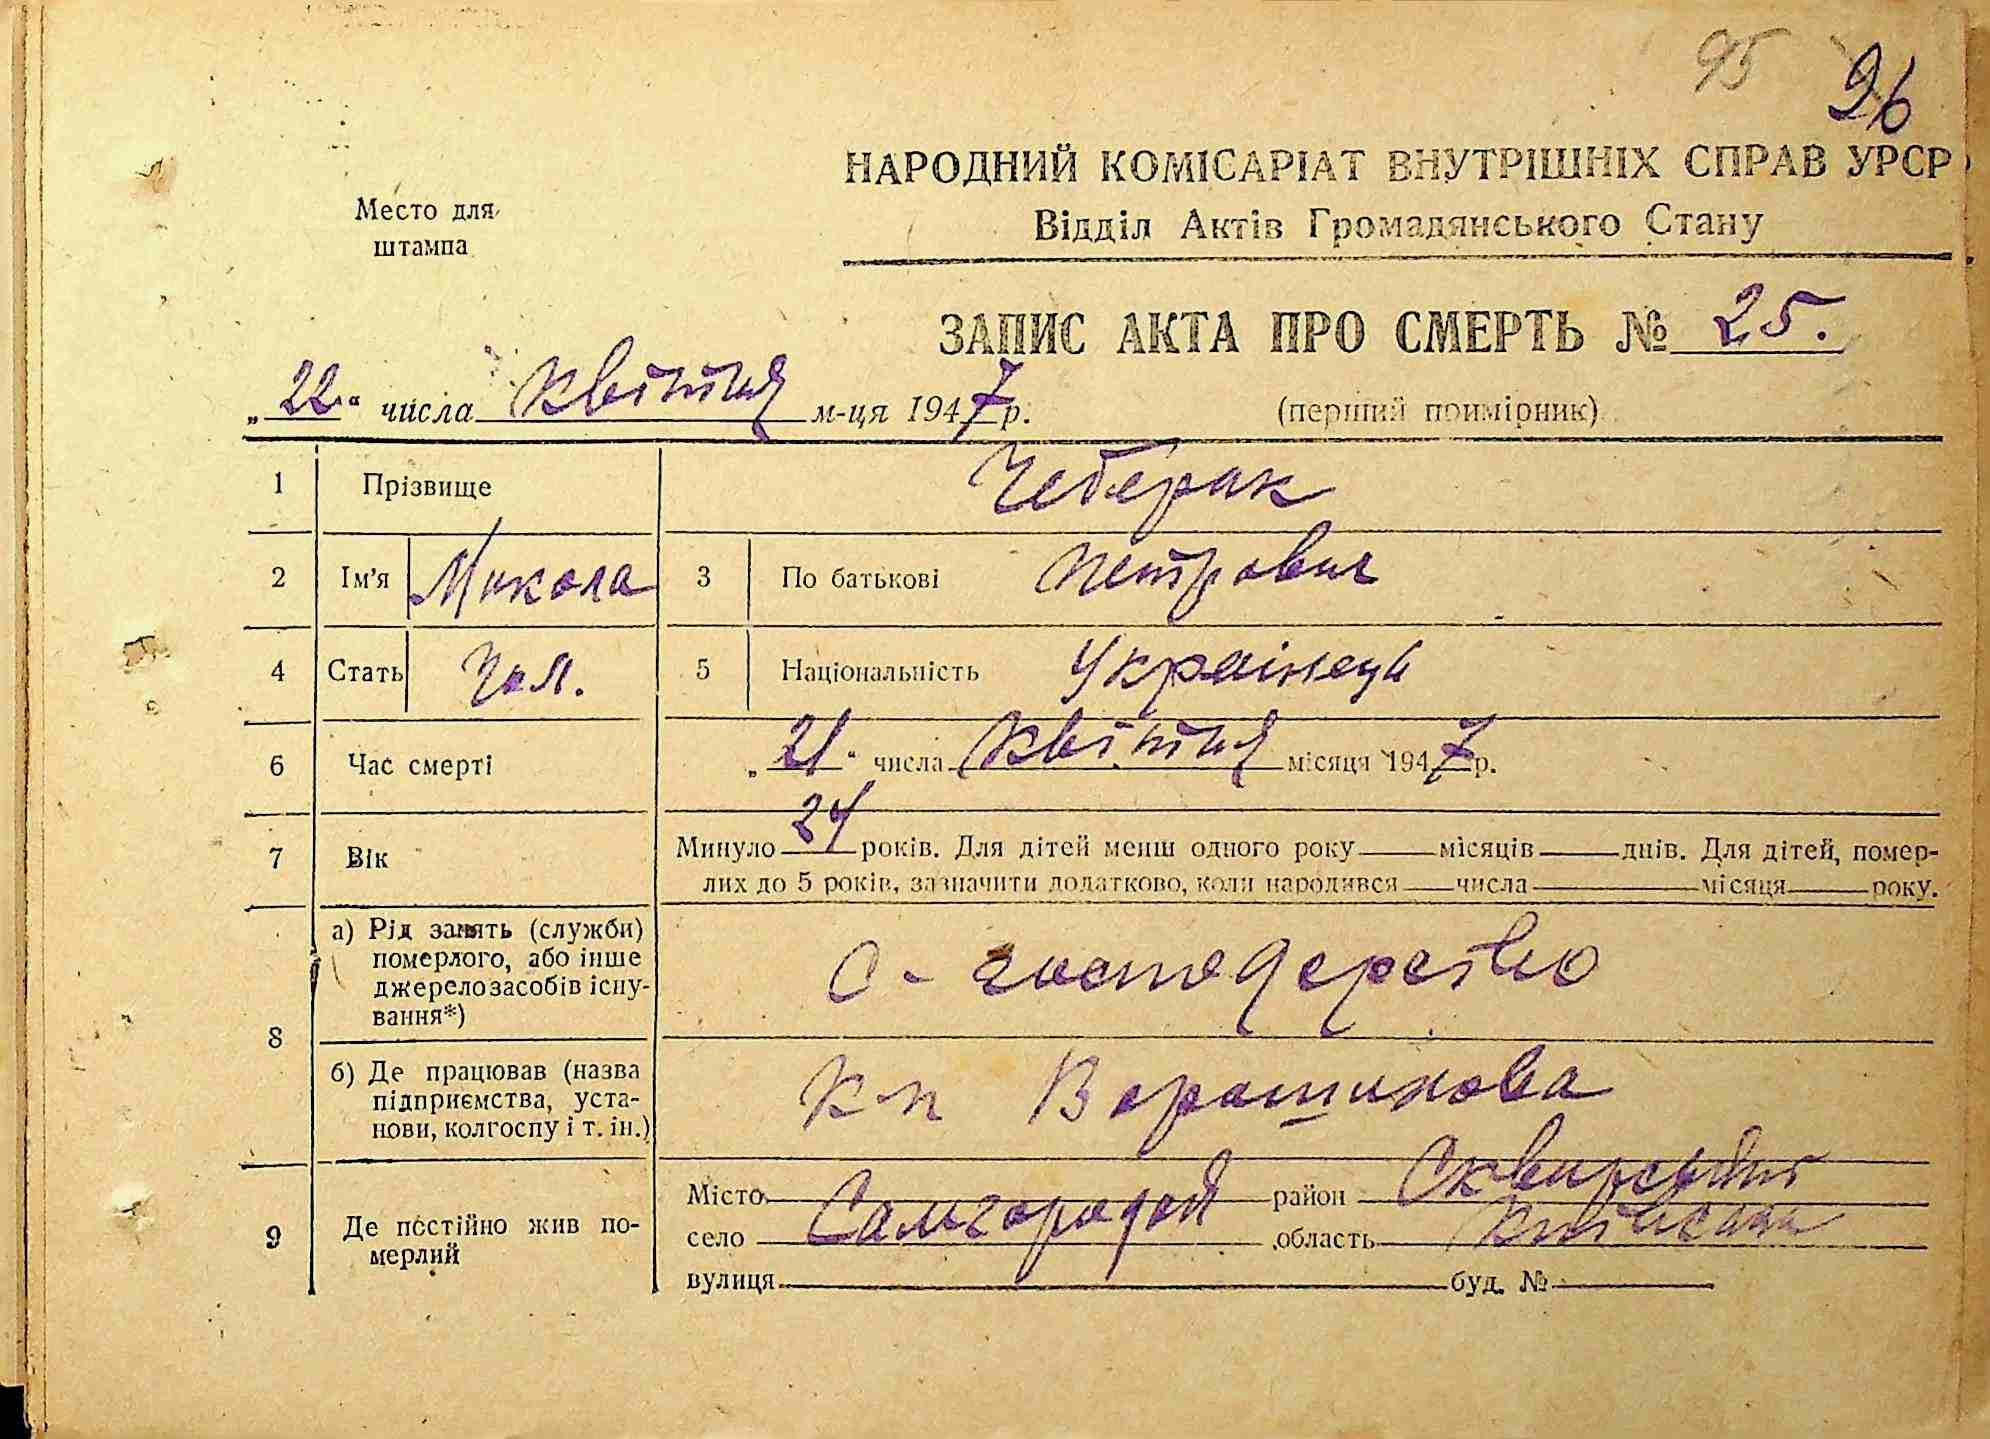 95 96
НАРОДНИЙ КОМІСАРІАТ ВНУТРІШНІХ СПРАВ УРСР
Место для штампа
Відділ Актів Громадянського Стану
ЗАПИС АКТА ПРО СМЕРТЬ № 25.
„22“ числа квітня м-ця 1947 р. (перший примірник)
1 Прізвище Чеберак
2 Ім’я Микола 3 По батькові Петрович
4 Стать Чол. 5 Національність Українець
6 Час смерті „21“ числа квітня місяця 1947 р.
7 Вік Минуло 24 років. Для дітей менш одного року місяців днів. Для дітей, помер-
лих до 5 років, зазначити додатково, коли народився числа місяця року.
8 а) Рід занять (служби)
померлого, або інше
джерело засобів існу-
вання*)
С-господарство
б) Де працював (назва
підприємства, уста-
нови, колгоспу і т. ін.)
к-п Ворошилова
9 Де постійно жив по-
мерлий
Місто район Сквирський
село Самгородок область Київська
вулиця буд. №